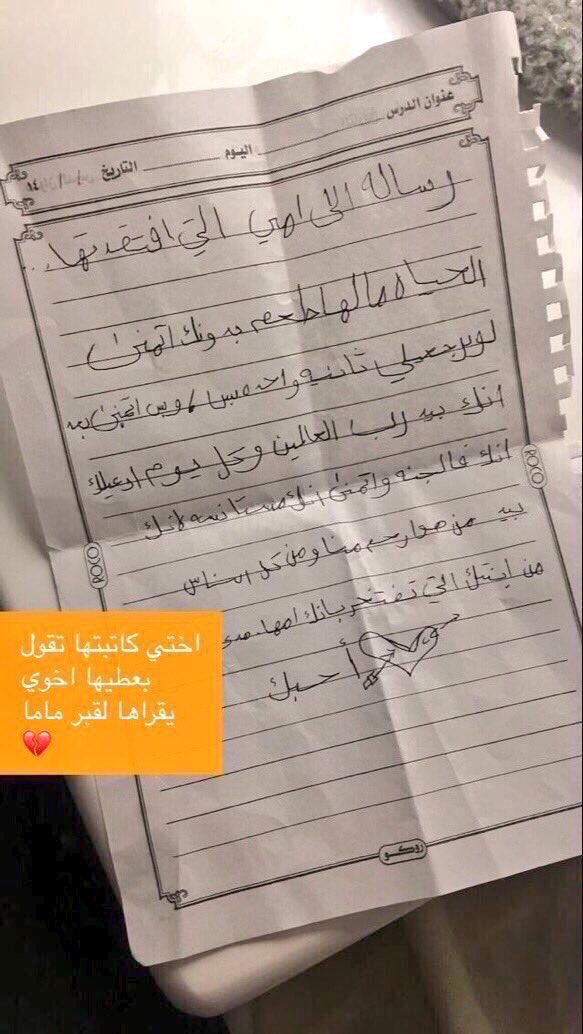 عنوان الدرس
اليوم التاريخ / / ١٤
رساله الى امي التي افتقدتها...
الحياه مالها طعم بدونك اتمنى
لو يرجعلي ثانيه واحده بس
انك بيد رب العالمين وكل يوم ادعيلك
انك فالجنه واتمنى انك مستانسه لانك
بيد من هو ارحم منا ومن كل الناس
من ابنتك التي تفتخر بانك امها
أحبك
ROCO
ROCO
اختي كاتبتها تقول
بعطيها اخوي
يقراها لقبر ماما
💔
روكو